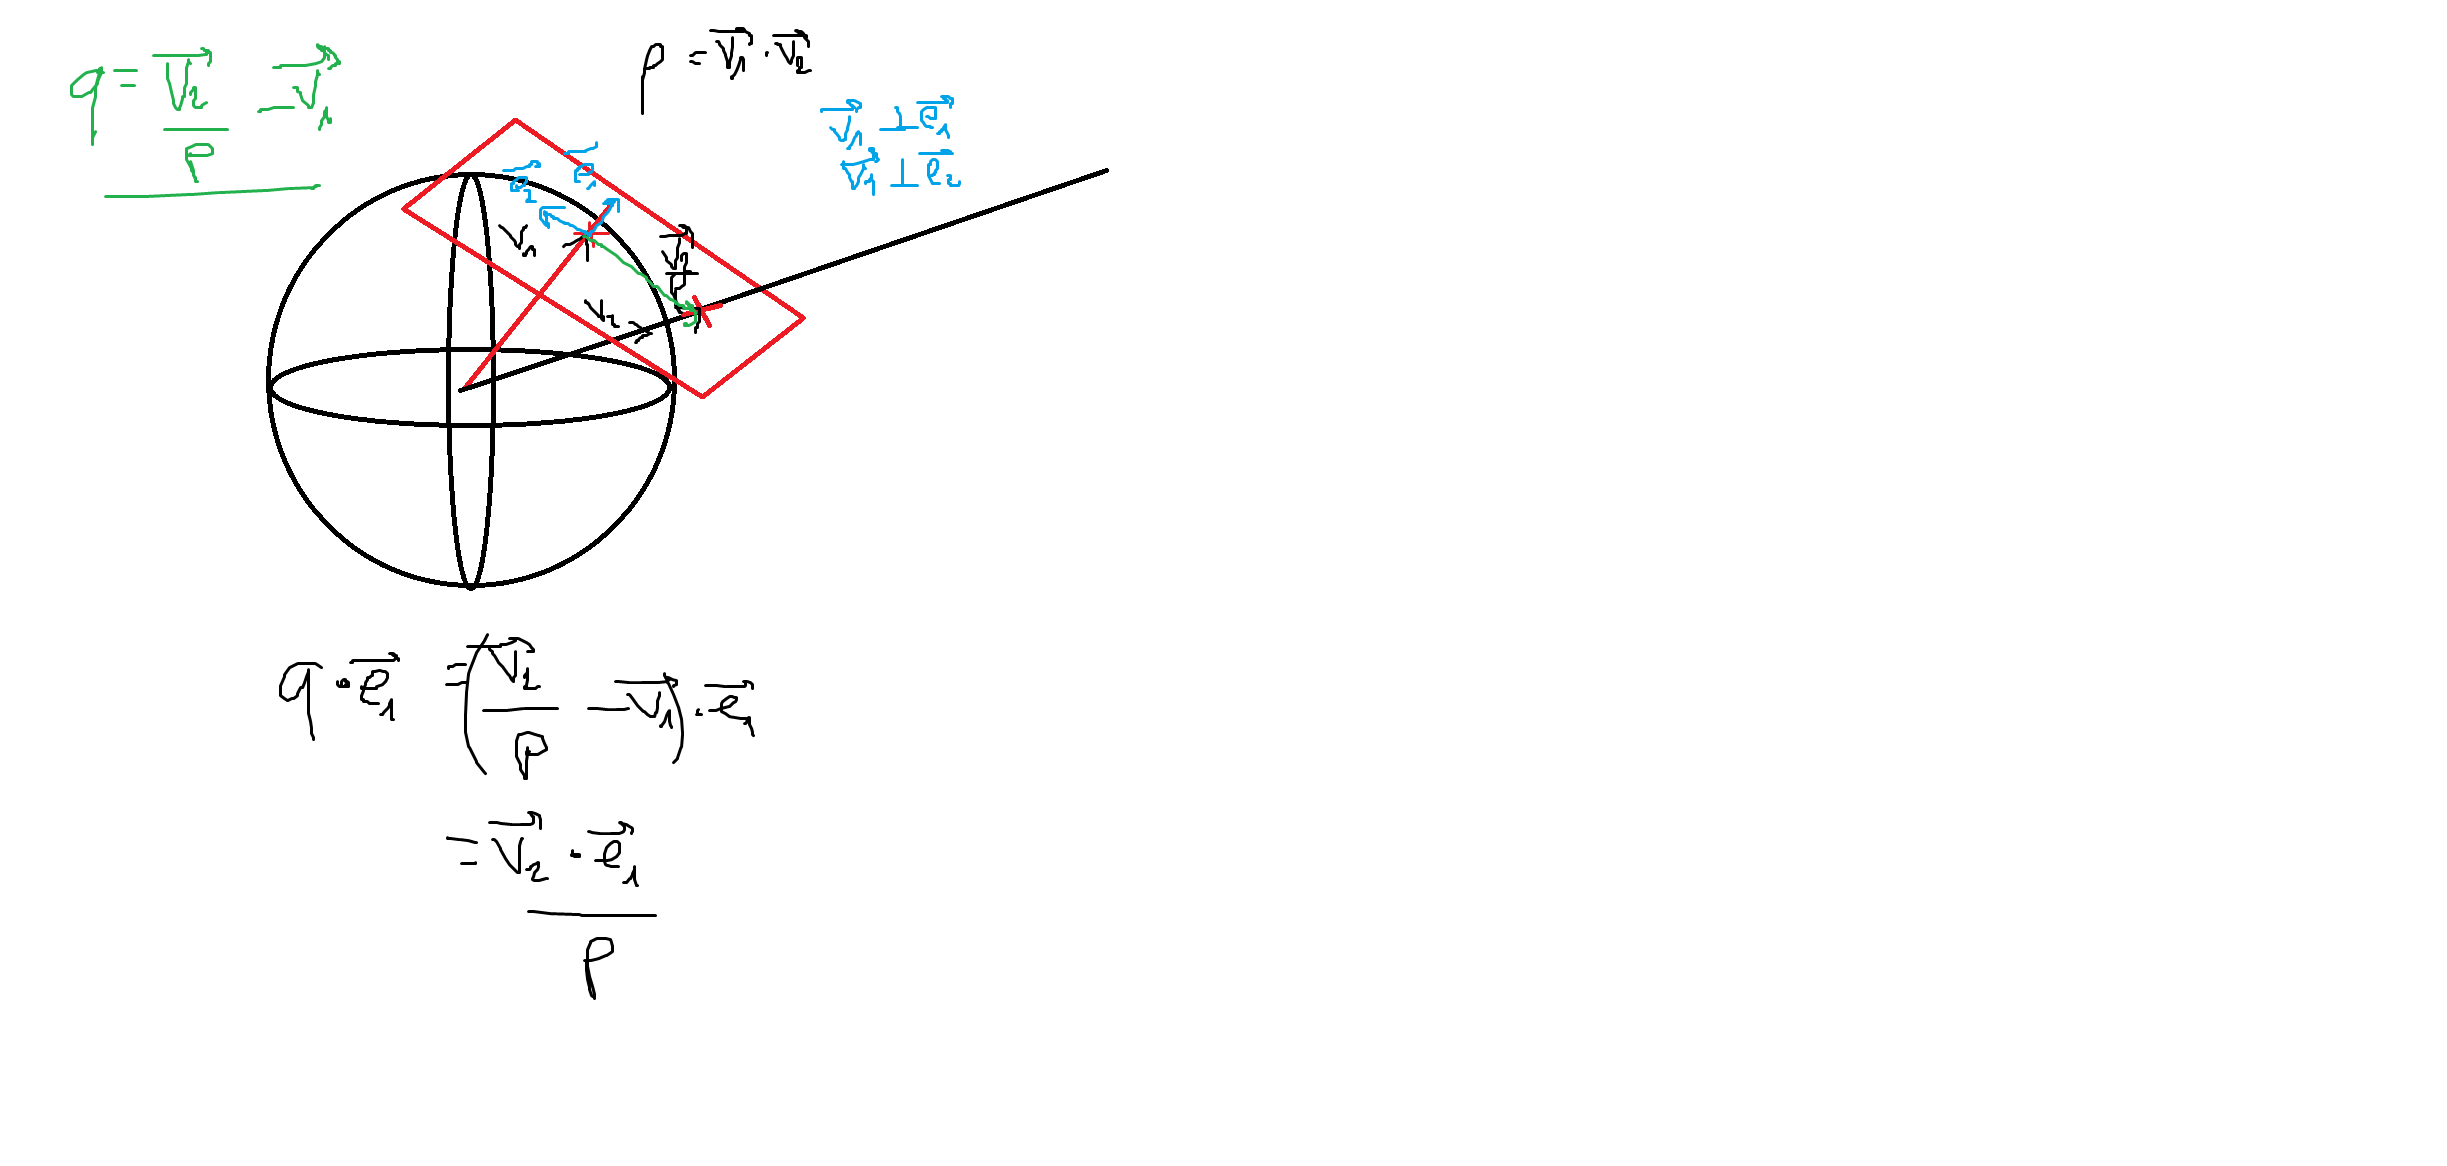 q = \frac{\vec{v_2}}{p} - \vec{v_1}
p = \vec{v_1} \cdot \vec{v_2}
\vec{v_1} ⊥ \vec{e_1}
\vec{v_1} ⊥ \vec{e_2}
\vec{e_2} \vec{e_1}
v_1
\frac{\vec{v_2}}{p}
v_2
q \cdot \vec{e_1} = \left( \frac{\vec{v_2}}{p} - \vec{v_1} \right) \cdot \vec{e_1}
= \frac{\vec{v_2} \cdot \vec{e_1}}{p}